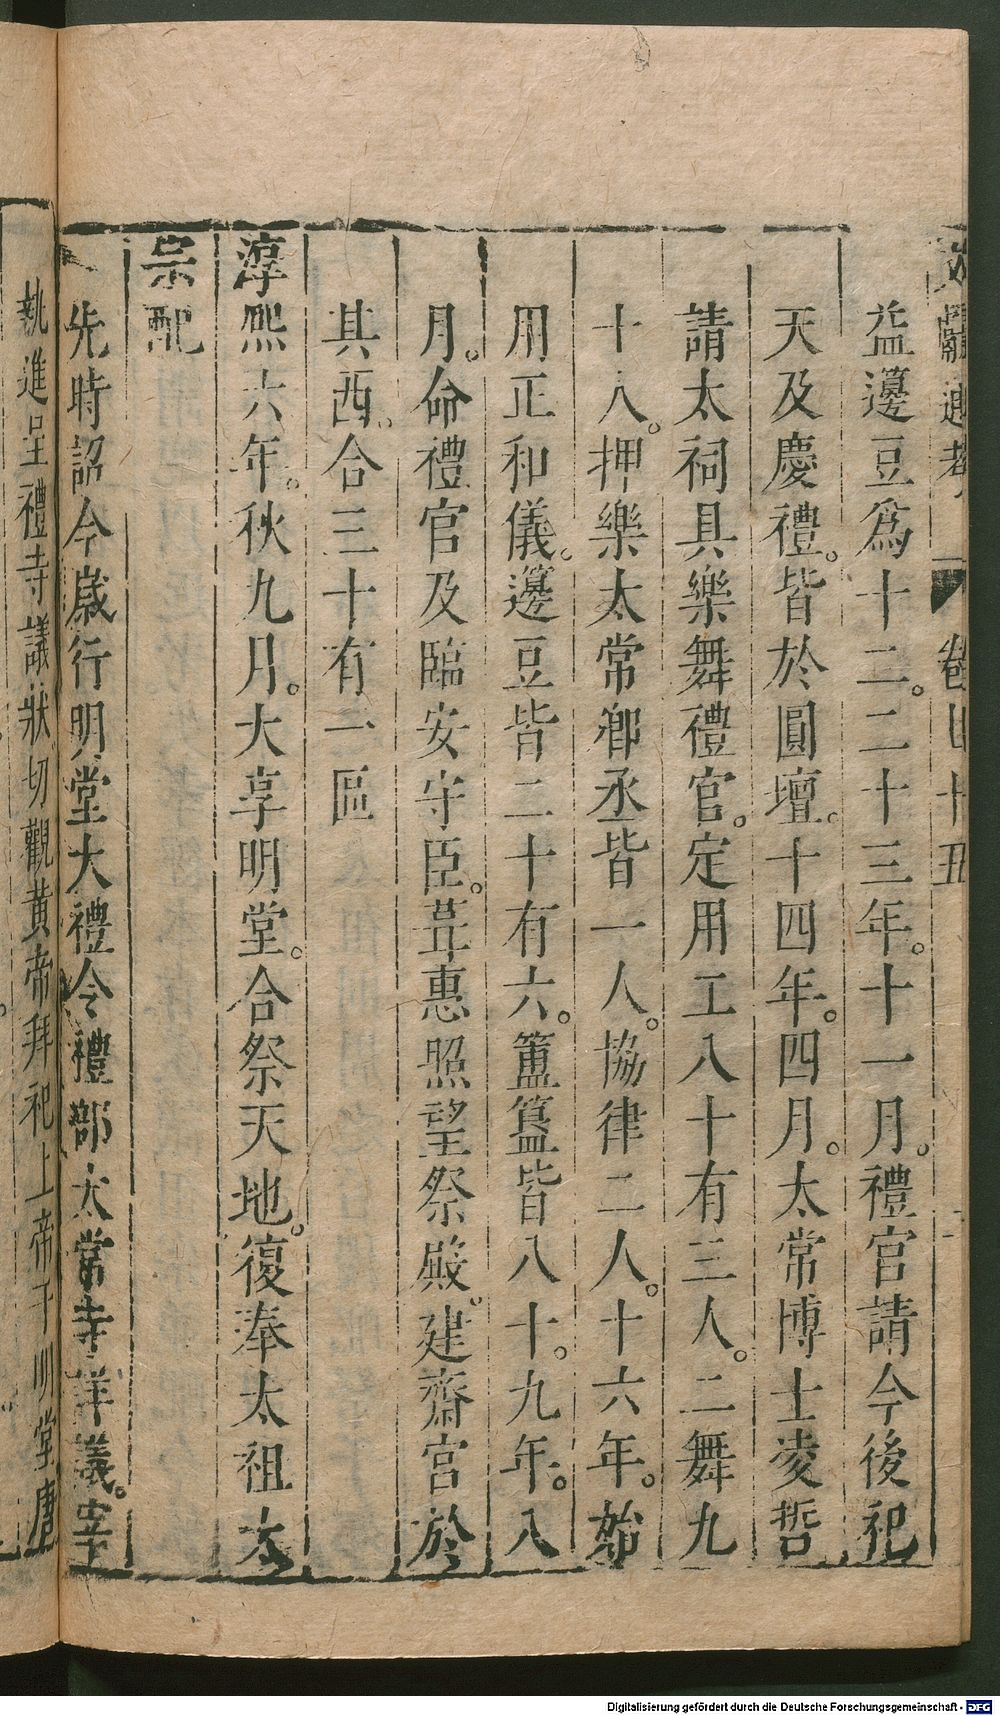 文獻通考 卷四十五
益籩豆爲十二。二十三年。十一月。禮官請今後祀
天及慶禮。皆於圓壇。十四年。四月。太常博士凌哲
請太祠具樂舞禮官。定用工八十有三人。二舞九
十八。押樂太常鄉丞皆一人。協律二人。十六年。始
用正和儀。籩豆皆二十有六。簠簋皆八十。九年。八
月。命禮官及臨安守臣。葺惠照望祭殿。建齋宮於
其西。合三十有一區
淳熙六年。秋九月。大享明堂。合祭天地。復奉太祖太
宗配
先時詔今歲行明堂大禮令禮部太常寺詳議。宰
執進呈禮寺議狀切觀黄帝拜祀上帝于明堂唐
Digitalisierung gefördert durch die Deutsche Forschungsgemeinschaft - DFG